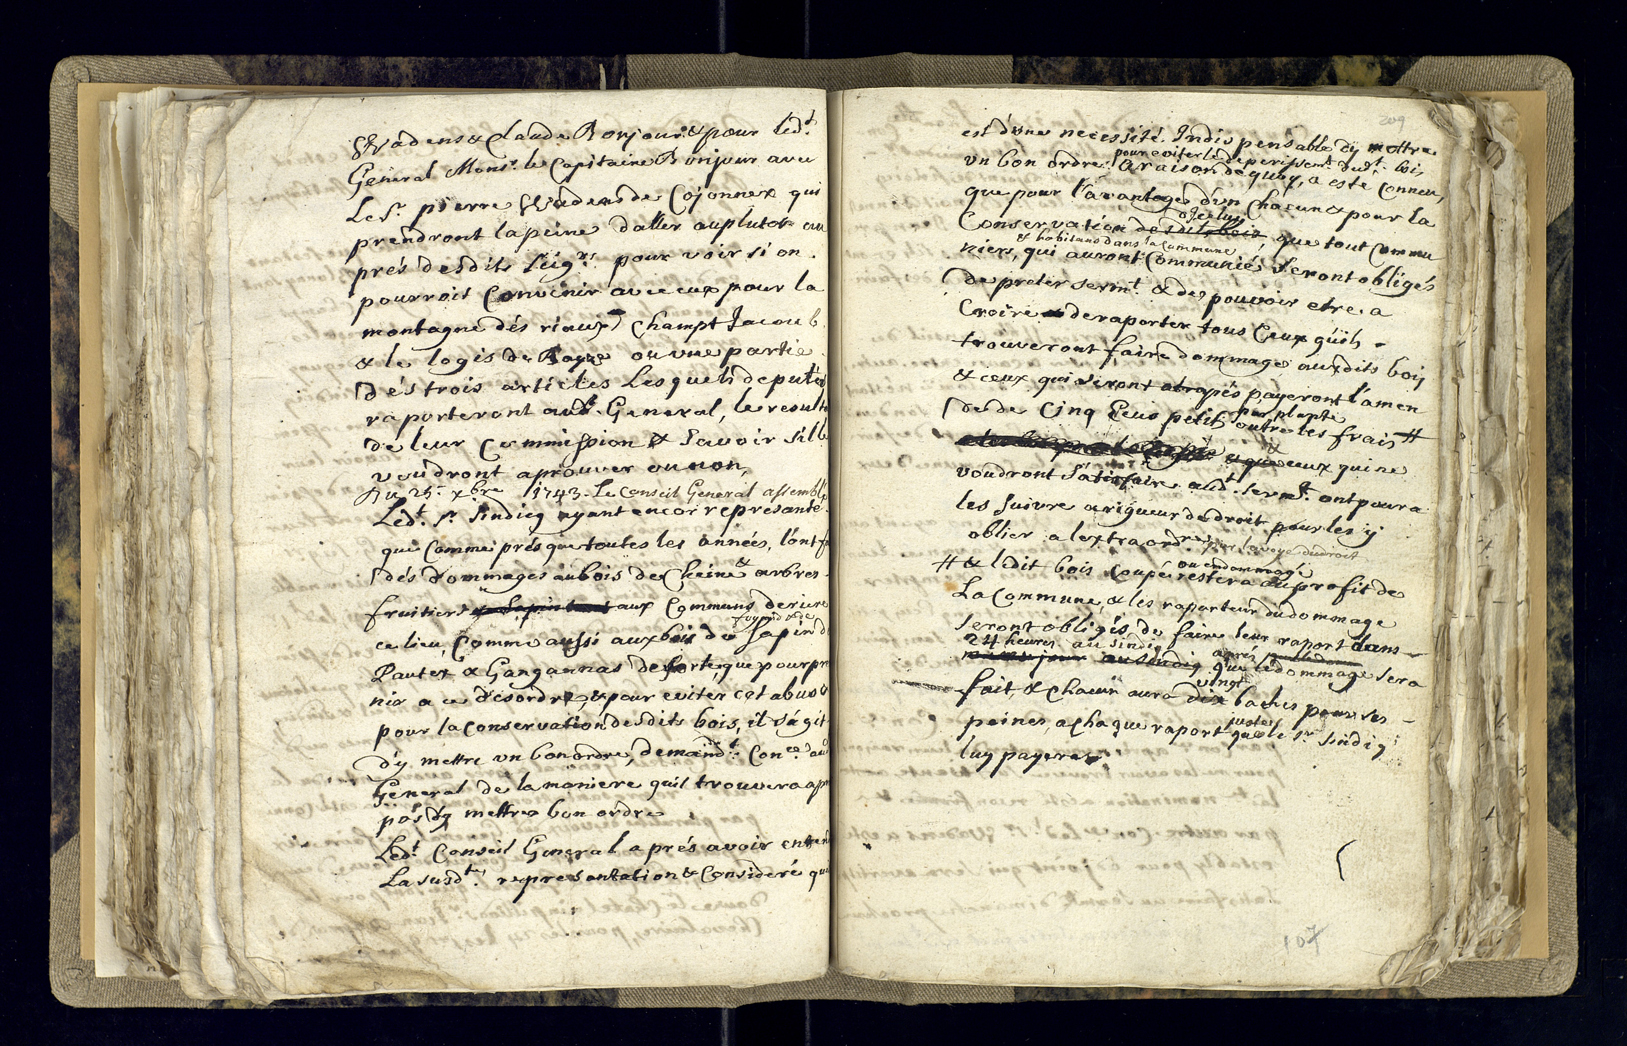 Wadens & Claude Bonjour & pour led.t
General Mons.r le Capitaine Bonjour avec
Le S.r pierre Wadens de Cojonnex qui
prendront la peine daller au plutot au
prés desdits Seig.rs pour voir si on
pourroit Convenir avec eux pour la
montagne dés riaux, Champt Jacoub
& le logis de Baye ou vne partie
dés trois articles Lesquels deputés
raporteront aud. General, le resulta
de leur Commission & Savoir Silb
voudront aprouver ou non,
Du 25.e xbre 1743. Le Conseil General assemblé
Led.t S.r Sindicq ayant encor représanté
que Comme présque toutes les années, l'ont f
dés dommages au bois de Cheine & arbres
fruitiers aux Communs deriere
ce lieu, Comme aussi aux bois de Sapin d
Pautex & Gangannas de sorte, que pour pre
nir a ce desordre, & pour eviter cet abus &
pour la Conservation desdits bois, il s'agit
d'y mettre vn bon ordre, demand.t Con.ce aud
General de la maniere quil trouvera apr
pos d'y mettre bon ordre
Led.t Conseil General aprés avoir entend
La susd.te representation & Consideré qu
209
est d'vne necessité Indispensable d'y mettre
pour eviter le deperissem.t dud.t bois
vn bon ordre. A raison de quoy, a esté Conneu,
que pour l'avantage d'vn Chacun & pour la
d'Iceluy
Conservation desdits bois, que tout Commu
& habitans dans la Commune
niers, qui auront Communié Seront obligés
de preter serm.t & de pouvoir etre a
Croire de raporter tous Ceux qu'ils
trouveront faire dommage auxdits bois
& ceux qui Seront atrapés payeront l'amen
par plante
de de Cinq Ecus petits outre les frais #
& que ceux qui ne
voudront Satisfaire aud.t serm.t ont poura
les suivre a rigueur de droit pour les y
oblier a lextraord.re par la voye du droit
ou endommagé
# & ledit bois Coupé restera au profit de
La Commune, & les raporteur du dommage
Seront obligés de faire leur raport dans
24 heures au Sindiq
au Sindiq aprés que le dommage Sera
vingt
fait, & chacun aura dix baches pour ses
peines, a chaque raport juste que le S.r Sindiq
luy payera
107